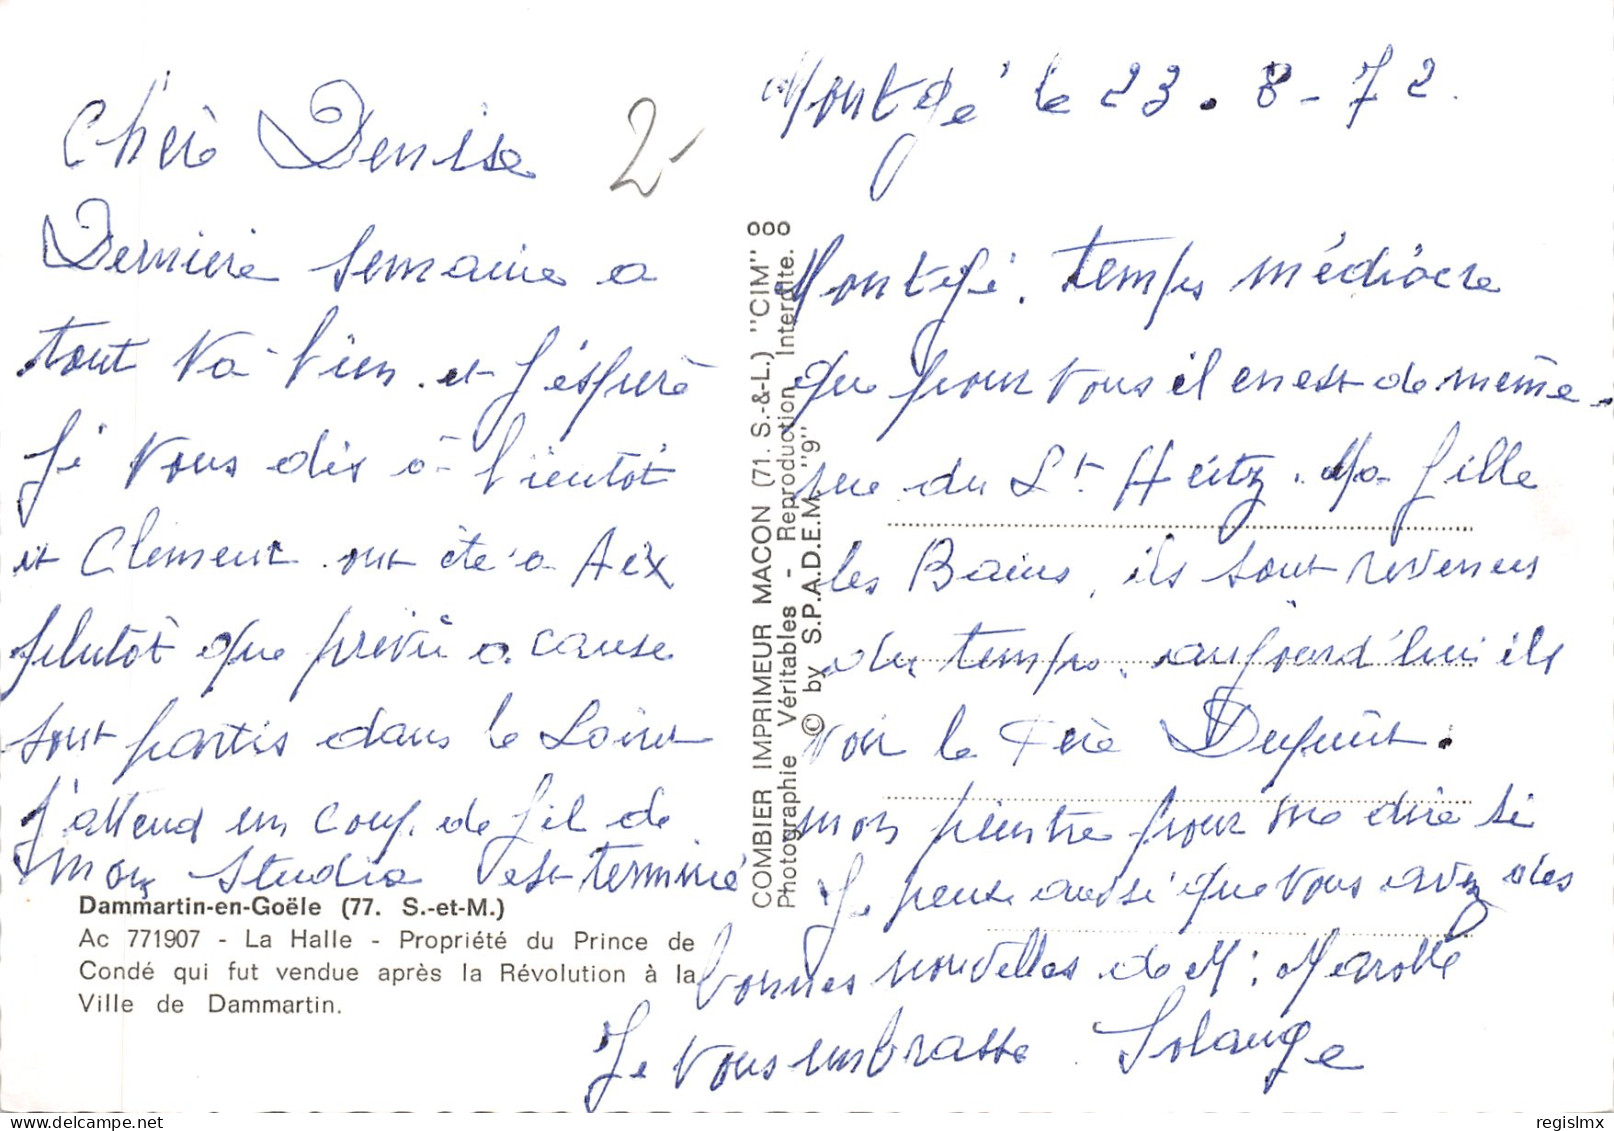 Montgé le 23.8-72.
Chère Denise
2-
Dernière semaine a Montgé. temps médiocre
tout va bien et j'éspère que pour vous il en est de même.
Je vous dis à bientôt rue du Lt Heitz. Ma fille
et Clement ont été a Aix les Bains, ils sont revenus
plutôt que prévu a cause du temps. aujourd'hui ils
sont partis dans le Loiret voir le Père Dupuit.
J'attend un coup de fil de mon peintre pour me dire si
mon studio est terminé Je pense aussi que vous avez des
bonnes nouvelles de M: Marolle
Je vous embrasse. Solange
Dammartin-en-Goële (77. S.-et-M.)
Ac 771907 - La Halle - Propriété du Prince de
Condé qui fut vendue après la Révolution à la
Ville de Dammartin.
COMBIER IMPRIMEUR MACON (71. S.-&-L.) "CIM"
Photographie Véritables - Reproduction Interdite.
© by S.P.A.D.E.M. "9"
regislmx